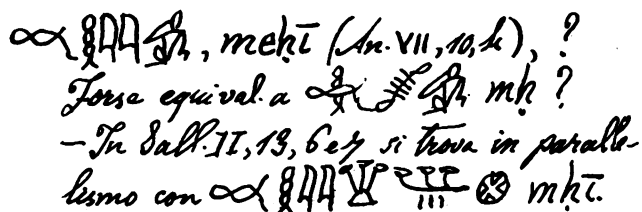 , meḥī (An. VII, 10, 4), ?
Forse equival. a mḥ ?
— In Sall. II, 13, 6 e 7 si trova in paralle-
lismo con mḥī.